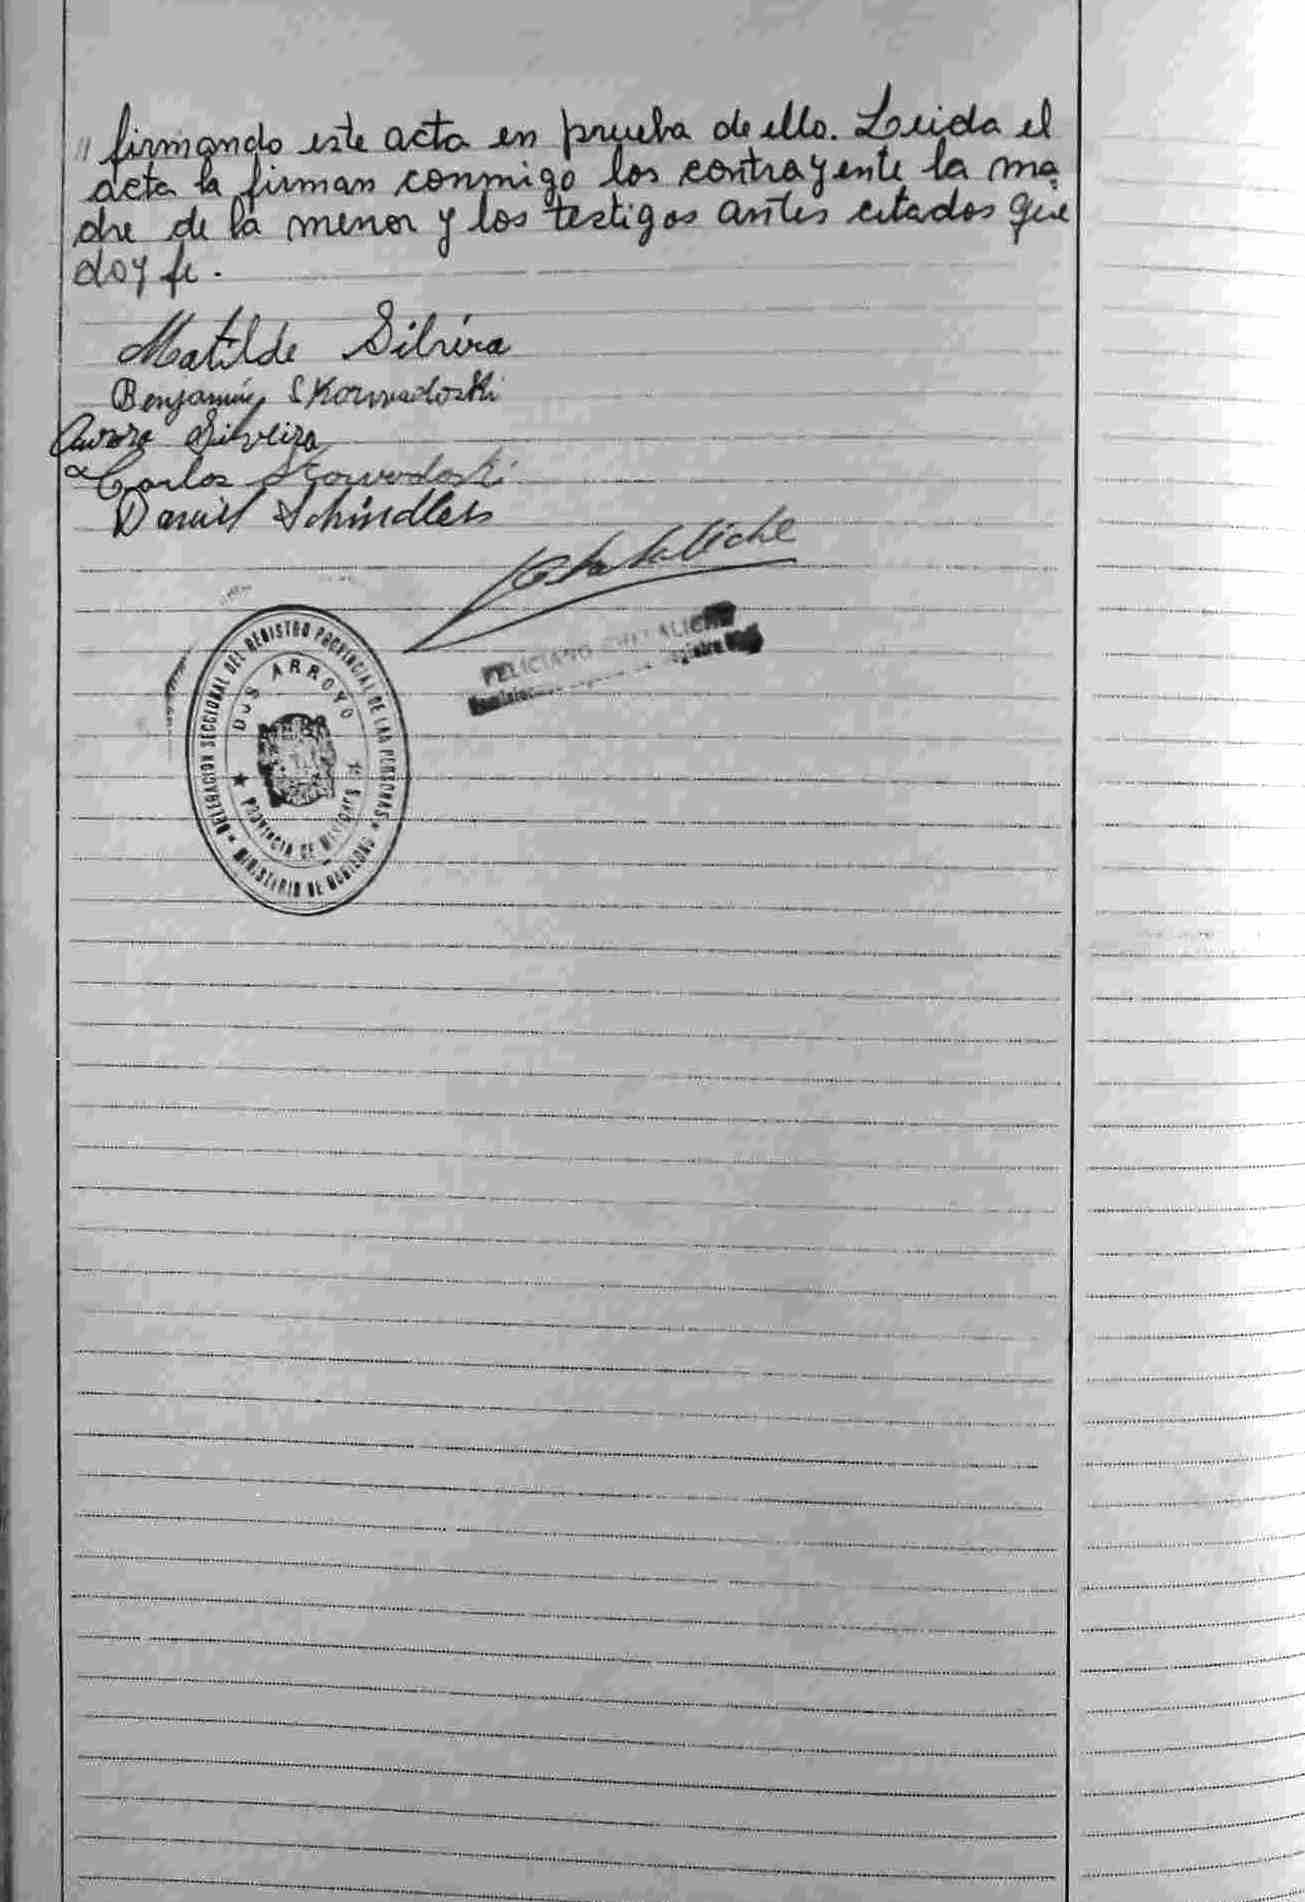 " firmando este acta en prueba de ello. Leida el
acta la firman conmigo los contrayente la ma
dre de la menor y los testigos antes citados que
doy fe.
Matilde Silvera
Benjamín Skowadoski
Aurora Silveira
Carlos
Daniel Schindler
DELEGACION SECCIONAL DEL REGISTRO PROVINCIAL DE LAS PERSONAS
DOS ARROYO
PROVINCIA DE MISIONES
MINISTERIO DE GOBIERNO
FELICIANO